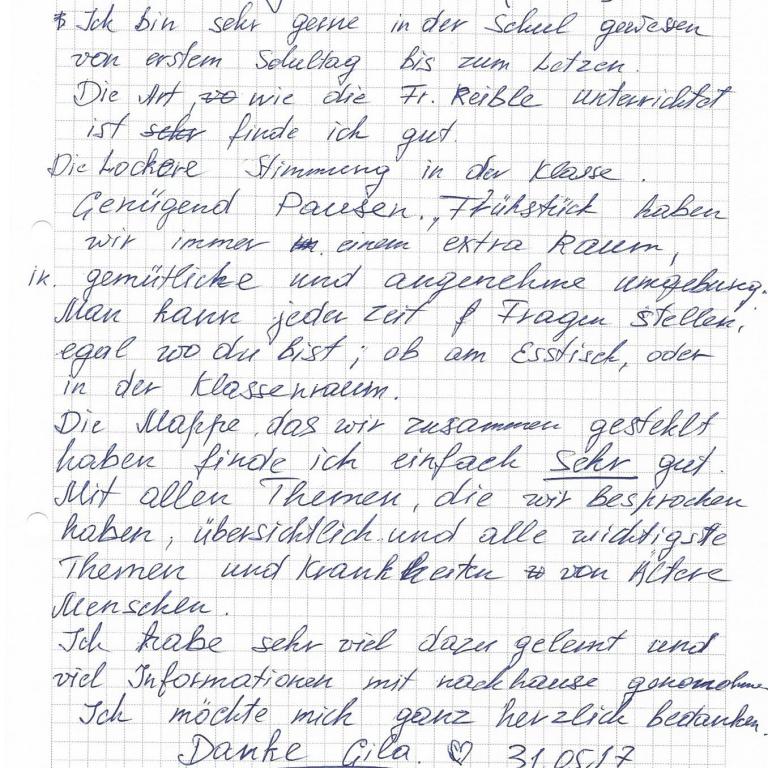 Ich bin sehr gerne in der Schul gewesen
von erstem Schultag bis zum Letzen.
Die Art, wie die Fr. Reible unterrichtet
ist sehr finde ich gut.
Die Lockere Stimmung in der Klasse.
Genügend Pausen. Frühstück haben
wir immer in einem extra Raum,
in. gemütliche und angenehme umgebung.
Man kann jeder Zeit Fragen stellen,
egal wo du bist; ob am Esstisch, oder
in der Klassenraum.
Die Mappe das wir zusammen gestehlt
haben finde ich einfach sehr gut.
Mit allen Themen, die wir besprochen
haben, übersichtlich und alle wichtigste
Themen und Krankheiten von Ältere
Menschen.
Ich habe sehr viel dazu gelernt und
viel Informationen mit nachhause genommen
Ich möchte mich ganz herzlich bedanken.
Danke Gila. ♡ 31.05.17